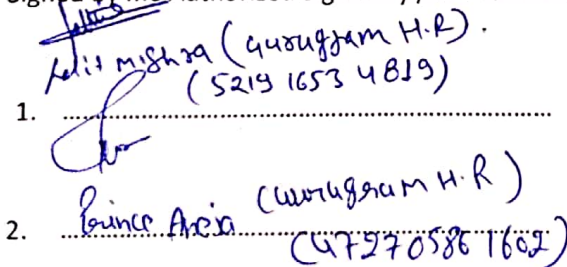 Lalit mishra (Gurugram H.R).
(5219 1653 4819)
1. ..........
Prince Areja (Gurugram H.R)
2. ..........
(472705861602)